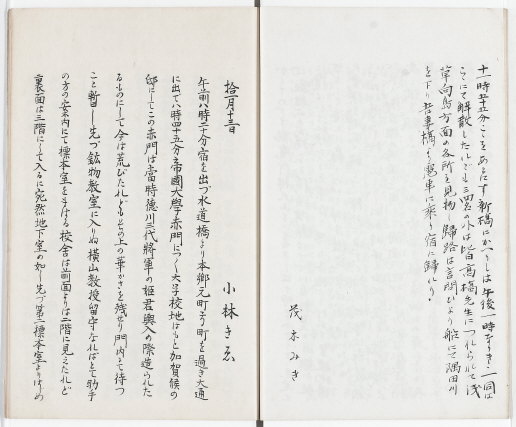 十一時五十五分こゝをあとにす新橋にかへりしは午後一時なりき一同は
こゝにて解散したれども三四名の外は皆高橋先生につれられて浅
草向島方面の各所を見物し歸路は言問ひより船にて隅田川
を下り吾妻橋より電車に乘り宿に歸れり。
茂木みき
拾一月十三日
小林きゑ
午前八時二十分宿を出づ水道橋より本郷元町などの町を過ぎ大通
に出で八時四十五分帝國大學赤門につく大学校地はもと加賀候の
邸にしてこの赤門は當時徳川三代將軍の姫君輿入の際造られた
るものにして今は荒びたれどもその上の華かさを残せり門内にて待つ
こと暫し先づ鉱物教室に入りぬ横山教授留守なればとて助手
の方の案内にて標本室をまはる校舎は前面よりは二階に見えたれど
裏面は三階にして入るに宛然地下室の如し先づ第一標本室よりはじめ